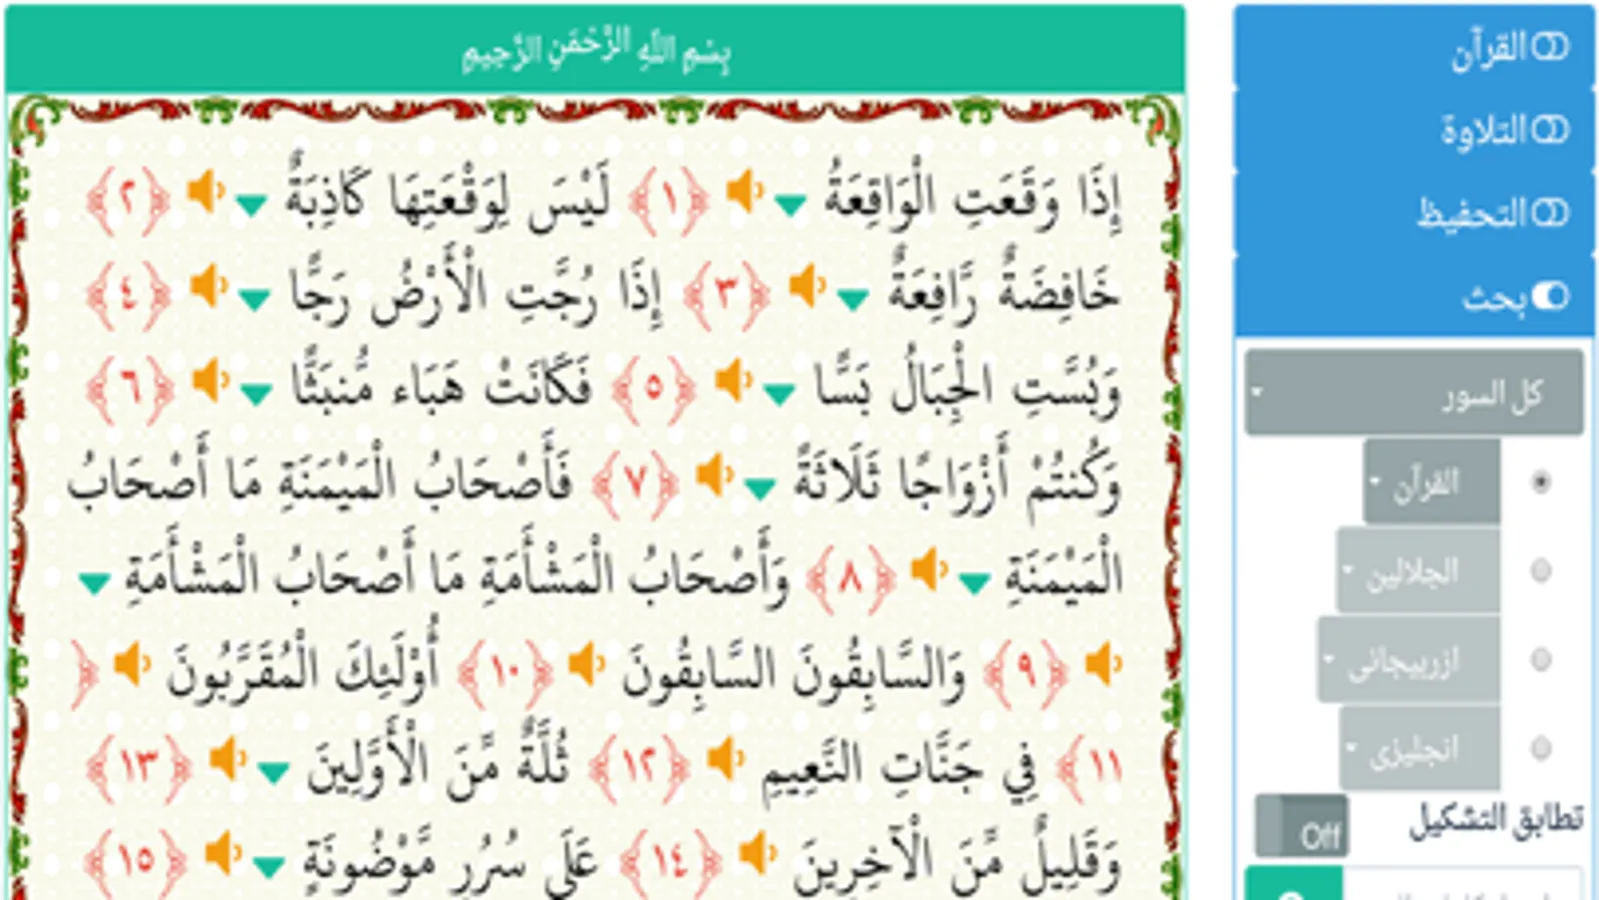 بِسْمِ اللَّهِ الرَّحْمَنِ الرَّحِيمِ
إِذَا وَقَعَتِ الْوَاقِعَةُ ﴿١﴾ لَيْسَ لِوَقْعَتِهَا كَاذِبَةٌ ﴿٢﴾
خَافِضَةٌ رَّافِعَةٌ ﴿٣﴾ إِذَا رُجَّتِ الْأَرْضُ رَجًّا ﴿٤﴾
وَبُسَّتِ الْجِبَالُ بَسًّا ﴿٥﴾ فَكَانَتْ هَبَاء مُّنبَثًّا ﴿٦﴾
وَكُنتُمْ أَزْوَاجًا ثَلَاثَةً ﴿٧﴾ فَأَصْحَابُ الْمَيْمَنَةِ مَا أَصْحَابُ
الْمَيْمَنَةِ ﴿٨﴾ وَأَصْحَابُ الْمَشْأَمَةِ مَا أَصْحَابُ الْمَشْأَمَةِ
﴿٩﴾ وَالسَّابِقُونَ السَّابِقُونَ ﴿١٠﴾ أُوْلَئِكَ الْمُقَرَّبُونَ ﴿
١١﴾ فِي جَنَّاتِ النَّعِيمِ ﴿١٢﴾ ثُلَّةٌ مِّنَ الْأَوَّلِينَ ﴿١٣﴾
وَقَلِيلٌ مِّنَ الْآخِرِينَ ﴿١٤﴾ عَلَى سُرُرٍ مَّوْضُونَةٍ ﴿١٥﴾
القرآن
التلاوة
التحفيظ
بحث
كل السور
القرآن
الجلالين
ازربيجانى
انجليزى
تطابق التشكيل
Off